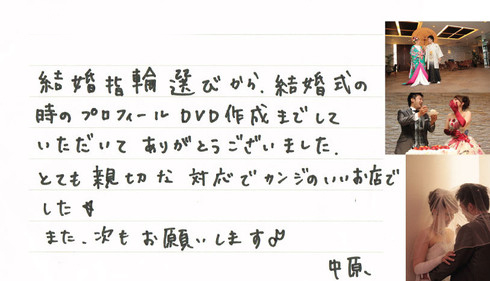 結婚指輪選びから、結婚式の
時のプロフィールDVD作成までして
いただいてありがとうございました。
とても親切な対応でカンジのいいお店で
した
また、次もお願いします♪
中原、